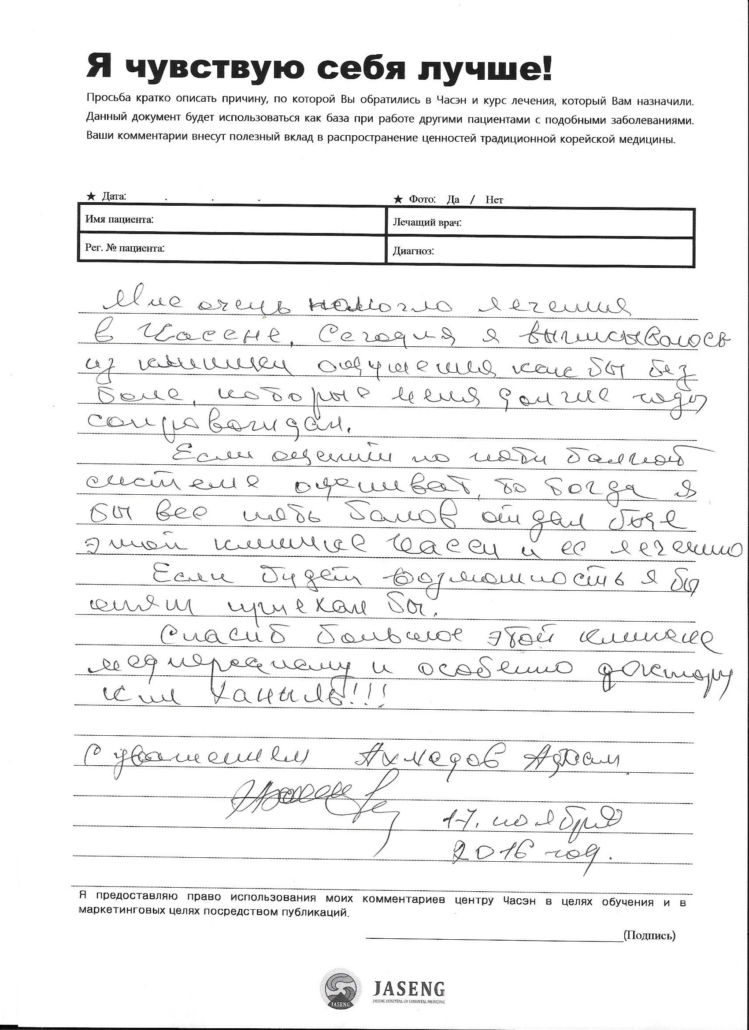 Я чувствую себя лучше!
Просьба кратко описать причину, по которой Вы обратились в Часэн и курс лечения, который Вам назначили.
Данный документ будет использоваться как база при работе другими пациентами с подобными заболеваниями.
Ваши комментарии внесут полезный вклад в распространение ценностей традиционной корейской медицины.
★ Дата: . . .
★ Фото: Да / Нет
Имя пациента:
Лечащий врач:
Рег. № пациента:
Диагноз:
Мне очень помогло лечения
в Часене, Сегодня я выписывалось
из клиники ощущения как бы без
боле, которые меня долгие годы
сопровождал.
Если оценит по пяти балной
системе оцениват, то тогда я
бы все пять балов отдал
этой клинике Часен и ее лечению
Если будет возможность я бы
опят приехал бы.
Спасиб большое этой клинике
медперсоналу и особенно доктору
Ким Ханыль!!!
С уважением Ахмедов Адхам
17. ноября
2016 год.
Я предоставляю право использования моих комментариев центру Часэн в целях обучения и в
маркетинговых целях посредством публикаций.
(Подпись)
JASENG